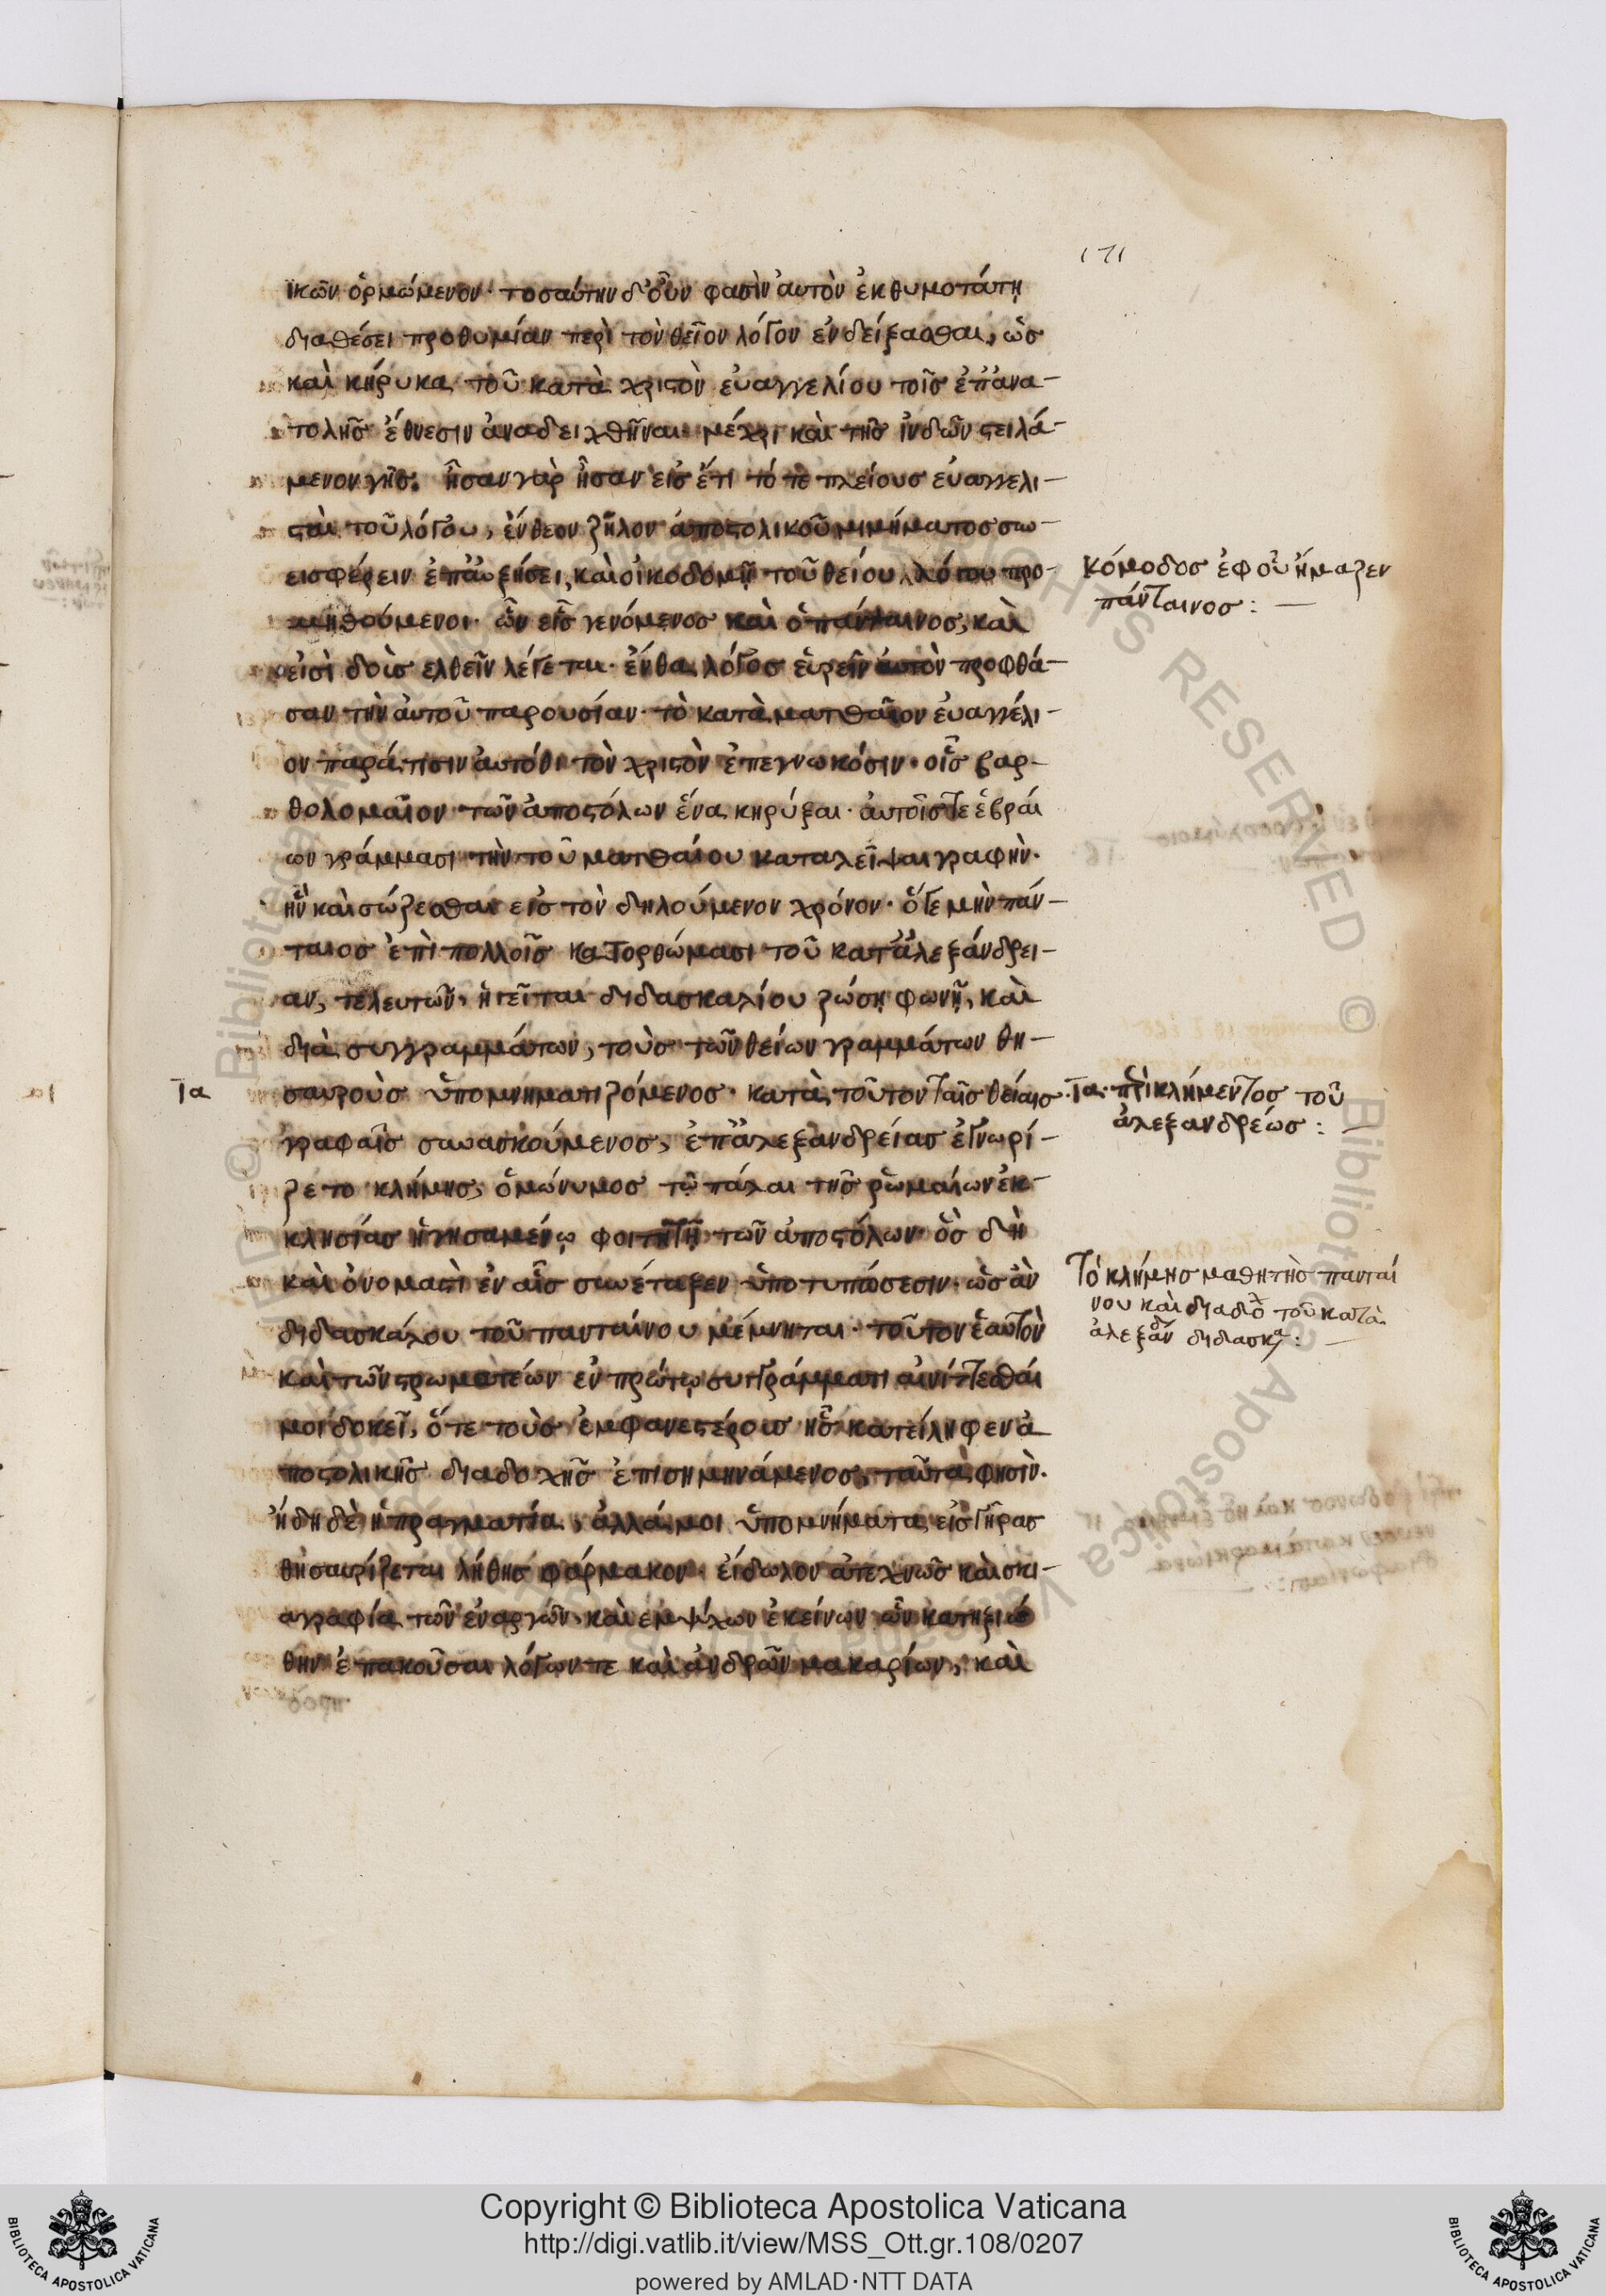 171
ϊκῶν ὁρμώμενον· τοσαύτην δ' οὖν φασὶν ἀυτὸν ἐκθυμοτάτη
διαθέσει προθυμίαν περὶ τὸν θεῖον λόγον ἐνδείξασθαι, ὡς
καὶ κήρυκα τοῦ κατὰ χριστὸν ἐυαγγελίου τοῖς ἐπ' ἀνα-
τολῆς ἔθνεσιν ἀναδειχθῆναι μέχρι καὶ τῆς ἰνδῶν στειλά-
μενον γῆς. ἦσαν γὰρ ἦσαν εἰς ἔτι τότε πλείους εὐαγγελι-
σταὶ τοῦ λόγου, ἔνθεον ζῆλον ἀποστολικοῦ μιμήματος συν-
εισφέρειν ἐπ' ἀυξήσει, καὶ οἰκοδομῆ τοῦ θείου λόγου προ-
μηθούμενοι· ὧν εἷς γενόμενος καὶ ὁ πάνταινος, καὶ
εἰς ἰνδοὺς ελθεῖν λέγεται· ἔνθα λόγος εὑρεῖν ἀυτὸν προφθά-
σαν τὴν ἀυτοῦ παρουσίαν· τὸ κατὰ ματθαῖον ἐυαγγέλι-
ον παρά τισιν ἀυτόθι τὸν χριστὸν ἐπεγνωκόσιν· οἷς βαρ-
θολομαῖον τῶν ἀποστόλων ἕνα κηρύξαι· ἀυτοῖς τε ἑβραί
ων γράμμασι τὴν τοῦ ματθαίου καταλεῖψαι γραφὴν·
ἣν καὶ σώζεσθαι εἰς τὸν δηλούμενον χρόνον· ὅγε μὴν πάν-
ταιος ἐπὶ πολλοῖς κατορθώμασι τοῦ κατ' ἀλεξάνδρει-
αν, τελευτῶν, ἡγεῖται διδασκαλίου ζώση φωνῇ, καὶ
διὰ συγγραμμάτων, τοὺς τῶν θείων γραμμάτων θη-
ια σαυροὺς ὑπομνηματιζόμενος· κατὰ τοῦτον ταῖς θείαις
γραφαῖς συνασκούμενος, ἐπ' ἀλεξανδρείας ἐγνωρί-
ζετο κλήμης, ὁμώνυμος τῷ πάλαι τῆς ῥωμαίων ἐκ-
κλησίας ἡγησαμένῳ φοιτητῆ τῶν ἀποστόλων· ὃς δὴ
καὶ ὀνομαστὶ ἐν αἷς συνέταξεν ὑποτυπώσεσιν· ὡς ἂν
διδασκάλου τοῦ πανταίνου μέμνηται· τοῦτον ἑαυτὸν
καὶ τῶν στρωματέων ἐν πρώτῳ συγγράμματι αἰνίττεσθαί
μοι δοκεῖ, ὅτε τοὺς ἐμφανεστέρους ἧς κατείληφεν ἀ
ποστολικῆς διαδοχῆς ἐπισημηνάμενος, ταῦτα φησὶν·
ἤδη δὲ ἡ πραγματία, ἀλλά μοι ὑπομνήματα εἰς γῆρας
θησαυρίζεται λήθης φάρμακον· εἴδωλον ἀτεχνῶς καὶ σκι-
αγραφία τῶν ἐναργῶν καὶ εμψύχων ἐκείνων ὧν κατηξιώ
θην ἐπακοῦσαι λόγων τε καὶ ἀνδρῶν μακαρίων, καὶ
κόμοδος ἐφ οὗ ἤκμαζεν
πάνταινος: —
ια· περὶ κλήμεντος τοῦ
ἀλεξανδρέως: —
ὁ κλήμης μαθητὴς πανταί
νου καὶ διάδοχ τοῦ κατὰ
ἀλεξάνδ διδασκα: —
Copyright © Biblioteca Apostolica Vaticana
http://digi.vatlib.it/view/MSS_Ott.gr.108/0207
powered by AMLAD·NTT DATA
BIBLIOTECA APOSTOLICA VATICANA
BIBLIOTECA APOSTOLICA VATICANA